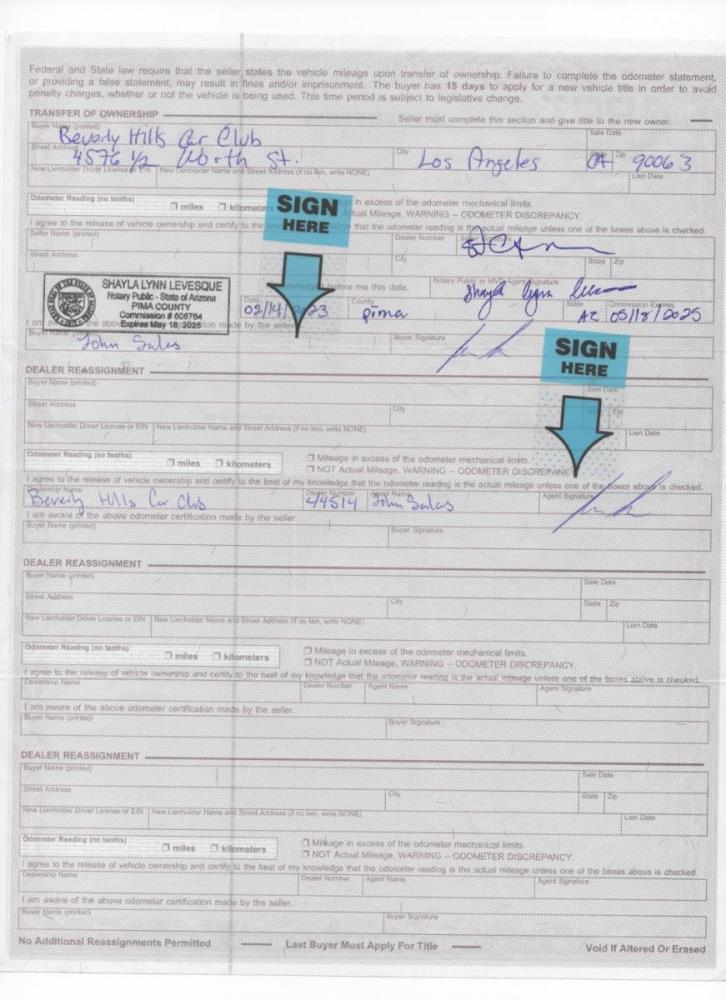 Federal and State law require that the seller states the vehicle mileage upon transfer of ownership. Failure to complete the odometer statement,
or providing a false statement, may result in fines and/or imprisonment. The buyer has 15 days to apply for a new vehicle title in order to avoid
penalty charges, whether or not the vehicle is being used. This time period is subject to legislative change.
TRANSFER OF OWNERSHIP Seller must complete this section and give title to the new owner.
Buyer Name (printed) Sale Date
Beverly Hills Car Club
Street Address City State Zip
4576 1/2 Worth St. Los Angeles CA 90063
New Lienholder Driver License or EIN New Lienholder Name and Street Address (if no lien, write NONE) Lien Date
Odometer Reading (no tenths) miles kilometers in excess of the odometer mechanical limits.
Actual Mileage, WARNING – ODOMETER DISCREPANCY.
SIGN HERE
I agree to the release of vehicle ownership and certify to the that the odometer reading is the actual mileage unless one of the boxes above is checked.
Seller Name (printed) Dealer Number
Street Address City State Zip
before me this date. Notary Public or MVD Agent Signature
SHAYLA LYNN LEVESQUE
Notary Public - State of Arizona
PIMA COUNTY
Commission # 605764
Expires May 18, 2025
Date County State Commission Expires
02/14/ 23 Pima Shayla Lynn AZ 05/18/2025
I am the above certification made by the seller.
Buyer Name Buyer Signature
John Salas
SIGN HERE
DEALER REASSIGNMENT
Buyer Name (printed) Sale Date
Street Address City Zip
New Lienholder Driver License or EIN New Lienholder Name and Street Address (if no lien, write NONE) Lien Date
Odometer Reading (no tenths) miles kilometers Mileage in excess of the odometer mechanical limits.
NOT Actual Mileage, WARNING – ODOMETER DISCREPANCY
I agree to the release of vehicle ownership and certify to the best of my knowledge that the odometer reading is the actual mileage unless one of the boxes above is checked.
Dealership Name Dealer Number Agent Name Agent Signature
Beverly Hills Car Club 44514 John Salas
I am aware of the above odometer certification made by the seller.
Buyer Name (printed) Buyer Signature
DEALER REASSIGNMENT
Buyer Name (printed) Sale Date
Street Address City State Zip
New Lienholder Driver License or EIN New Lienholder Name and Street Address (if no lien, write NONE) Lien Date
Odometer Reading (no tenths) miles kilometers Mileage in excess of the odometer mechanical limits.
NOT Actual Mileage, WARNING – ODOMETER DISCREPANCY.
I agree to the release of vehicle ownership and certify to the best of my knowledge that the odometer reading is the actual mileage unless one of the boxes above is checked.
Dealership Name Dealer Number Agent Name Agent Signature
I am aware of the above odometer certification made by the seller.
Buyer Name (printed) Buyer Signature
DEALER REASSIGNMENT
Buyer Name (printed) Sale Date
Street Address City State Zip
New Lienholder Driver License or EIN New Lienholder Name and Street Address (if no lien, write NONE) Lien Date
Odometer Reading (no tenths) miles kilometers Mileage in excess of the odometer mechanical limits.
NOT Actual Mileage, WARNING – ODOMETER DISCREPANCY
I agree to the release of vehicle ownership and certify to the best of my knowledge that the odometer reading is the actual mileage unless one of the boxes above is checked.
Dealership Name Dealer Number Agent Name Agent Signature
I am aware of the above odometer certification made by the seller.
Buyer Name (printed) Buyer Signature
No Additional Reassignments Permitted Last Buyer Must Apply For Title Void If Altered Or Erased